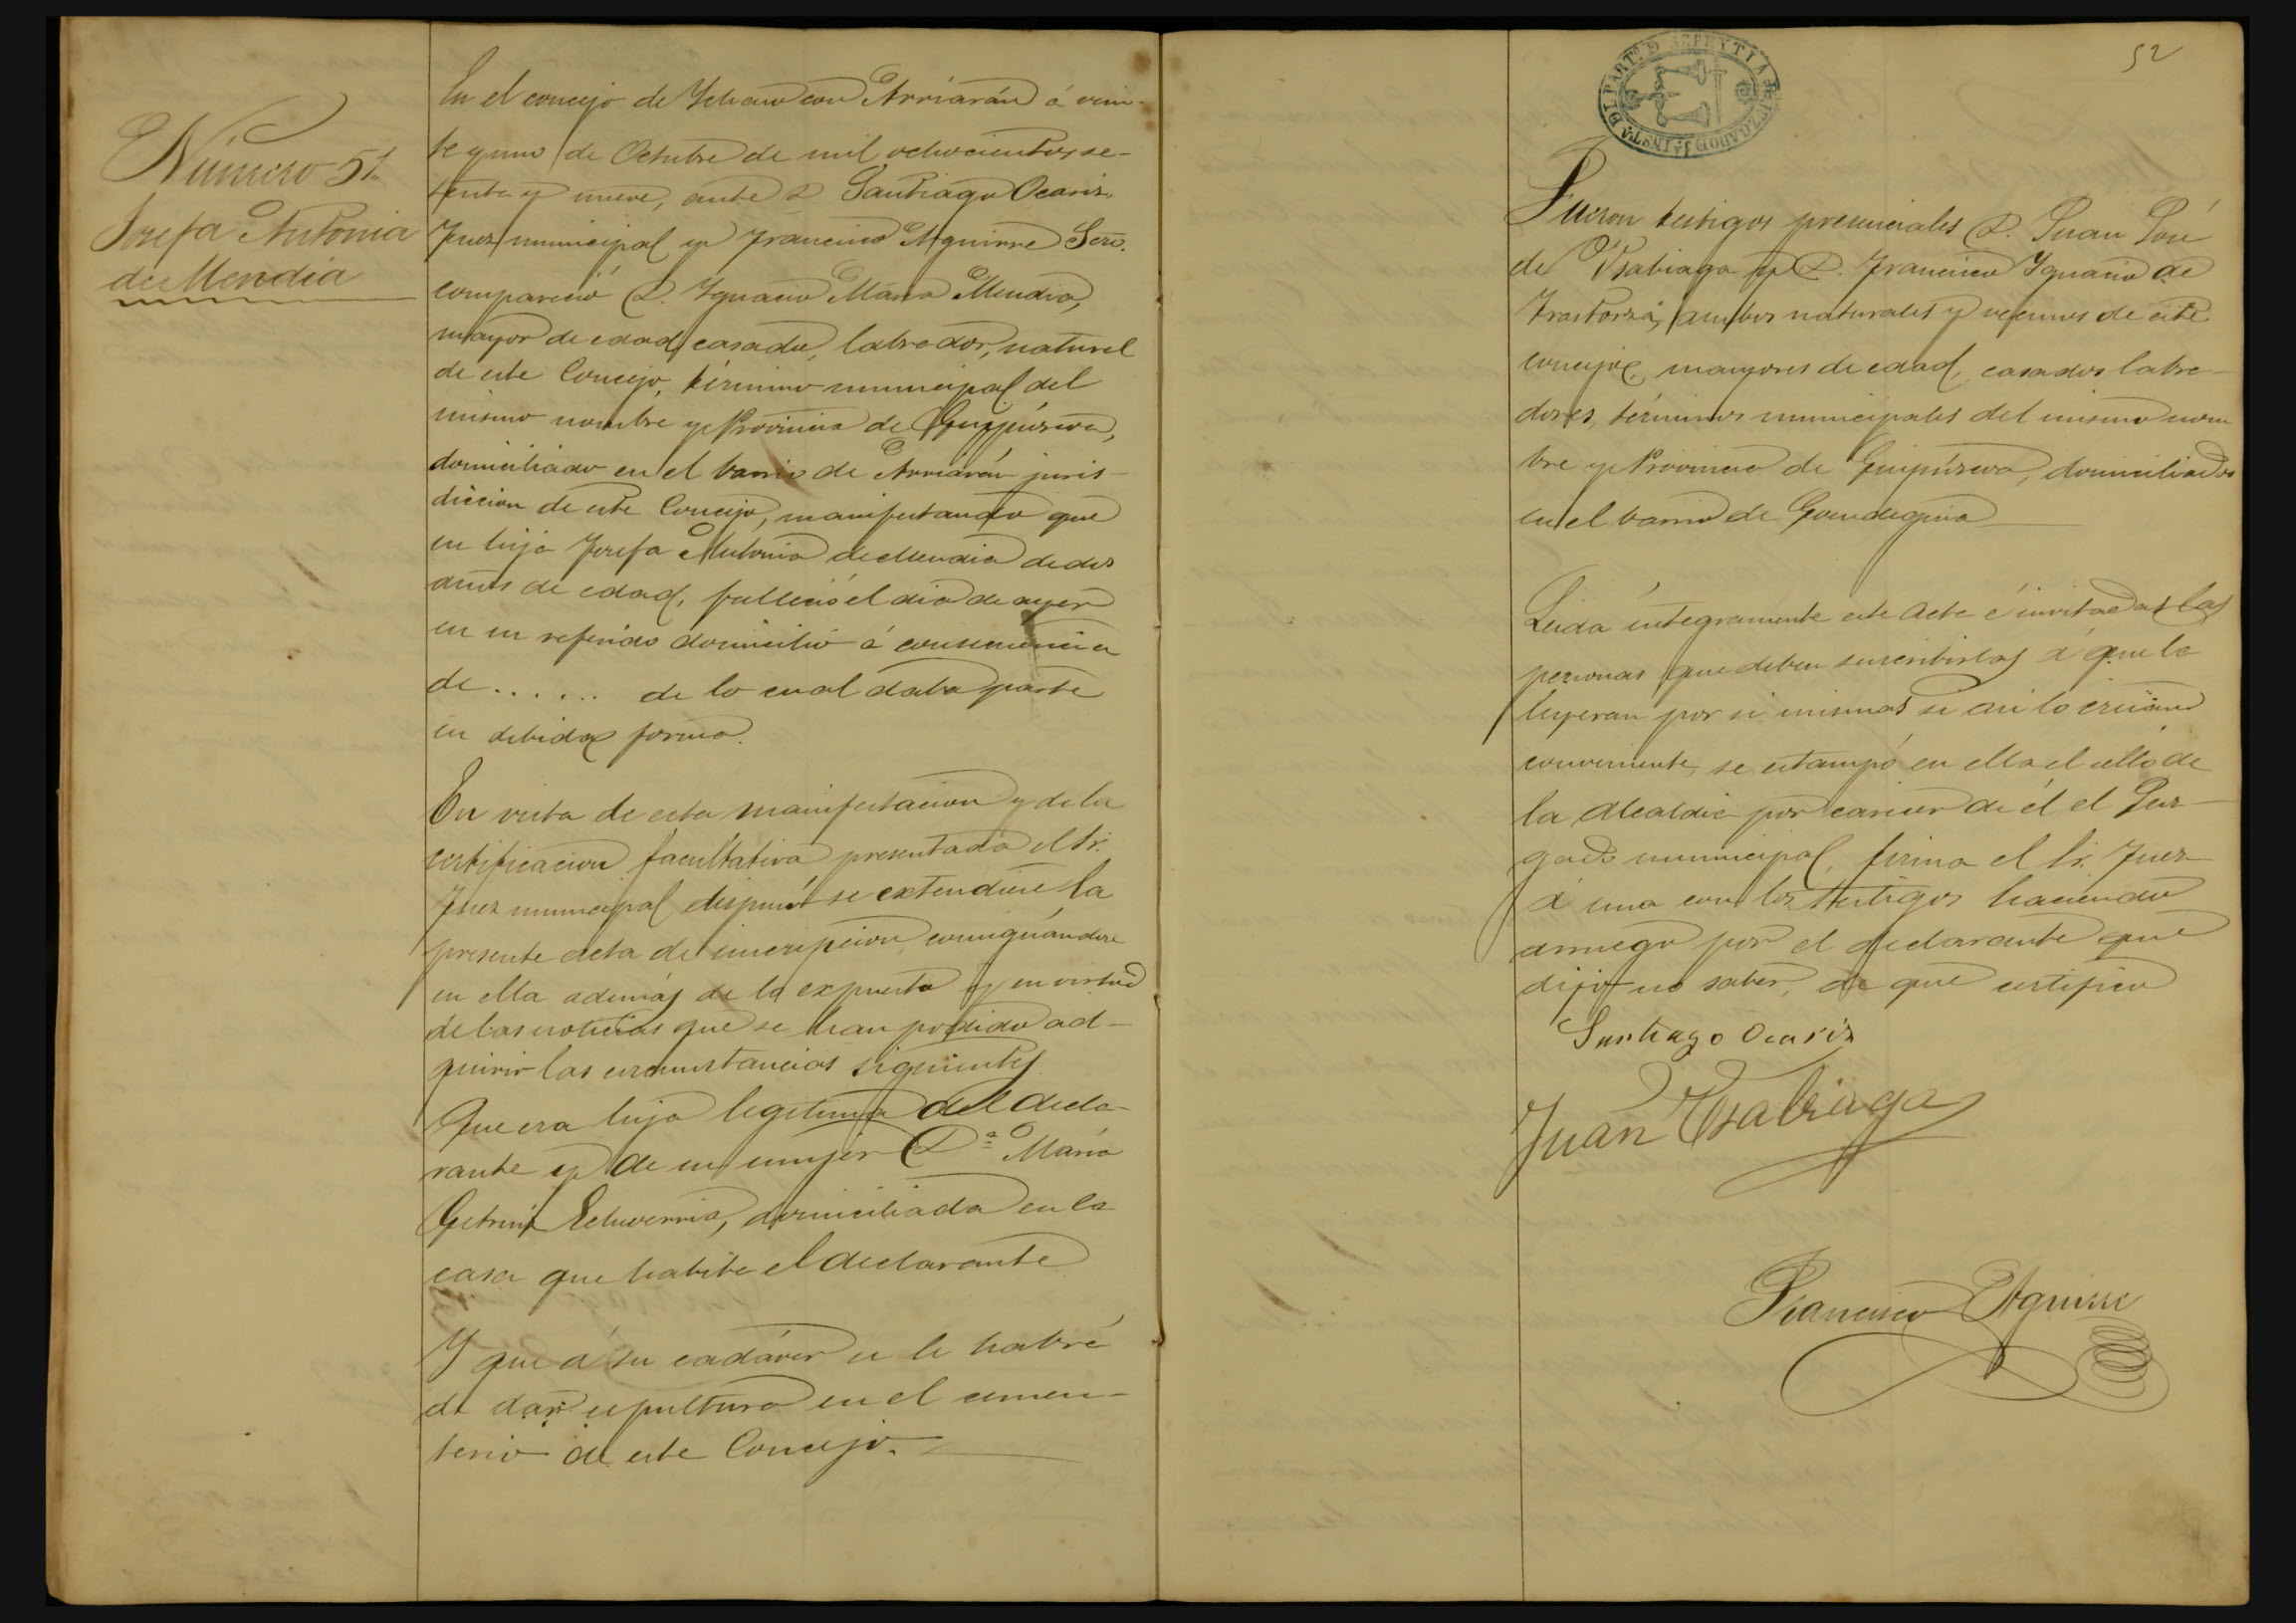 Número 51.
Josefa Antonia
de Mendia
En el concejo de Ichaso con Arriarán á vein-
te y uno de Octubre de mil ochocientos se-
tenta y nueve, ante D Santiago Ocariz,
Juez municipal y Francisco Aguirre Serio.
compareció D. Ignacio Maria Mendia,
mayor de edad, casado, labrador, natural
de este Concejo, término municipal del
mismo nombre y Provincia de Guipúzcoa,
domiciliado en el barrio de Arriarán juris-
diccion de este Concejo, manifestando que
su hija Josefa Antonia de Mendia de dos
años de edad, falleció el dia de ayer
en su referido domicilio á consecuencia
de...... de lo cual daba parte
en debida forma.
En vista de esta manifestacion y de la
certificacion facultativa presentada el Sr.
Juez municipal dispuso se extendiese la
presente acta de inscripcion, consignándose
en ella además de lo expuesto y en virtud
de las noticias que se han podido ad-
quirir las circunstancias siguientes
Que era hija legitima del decla-
rante y de su mujer Dª Maria
Echeverria, domiciliada en la
casa que habita el declarante
Y que á su cadáver se le habrá
de dar sepultura en el cemen-
terio de este Concejo.
52
JUZGADO DE 1ª INSTª DEL PARTº DE AZPEYTIA
Fueron testigos presenciales D. Juan José
de Ysabiaga y D. Francisco Ygnacio de
Trastorza, ambos naturales y vecinos de este
concejo, mayores de edad, casados labra-
dores, términos municipales del mismo nom
bre y Provincia de Guipúzcoa, domiciliados
en el barrio de
Leida integramente este Acta é invitadas las
personas que deben suscribirlas á que la
leyeran por si mismas si asi lo creian
conveniente, se estampó en ella el sello de
la Alcaldia por carecer de él el Juz-
gado municipal, firma el Sr. Juez
á una con los testigos haciendo
arruego por el declarante que
dijo no saber, de que certifico
Santiago Ocariz
Juan Ysabiaga
Francisco Aguirre